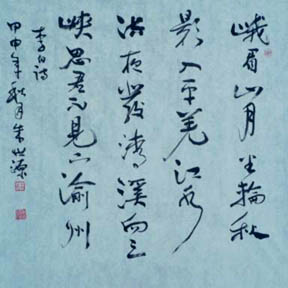 峨眉山月半輪秋
影入平羌江水
流夜發清溪向三
峽思君不見下渝州
李白詩
甲申年秋月朱世源